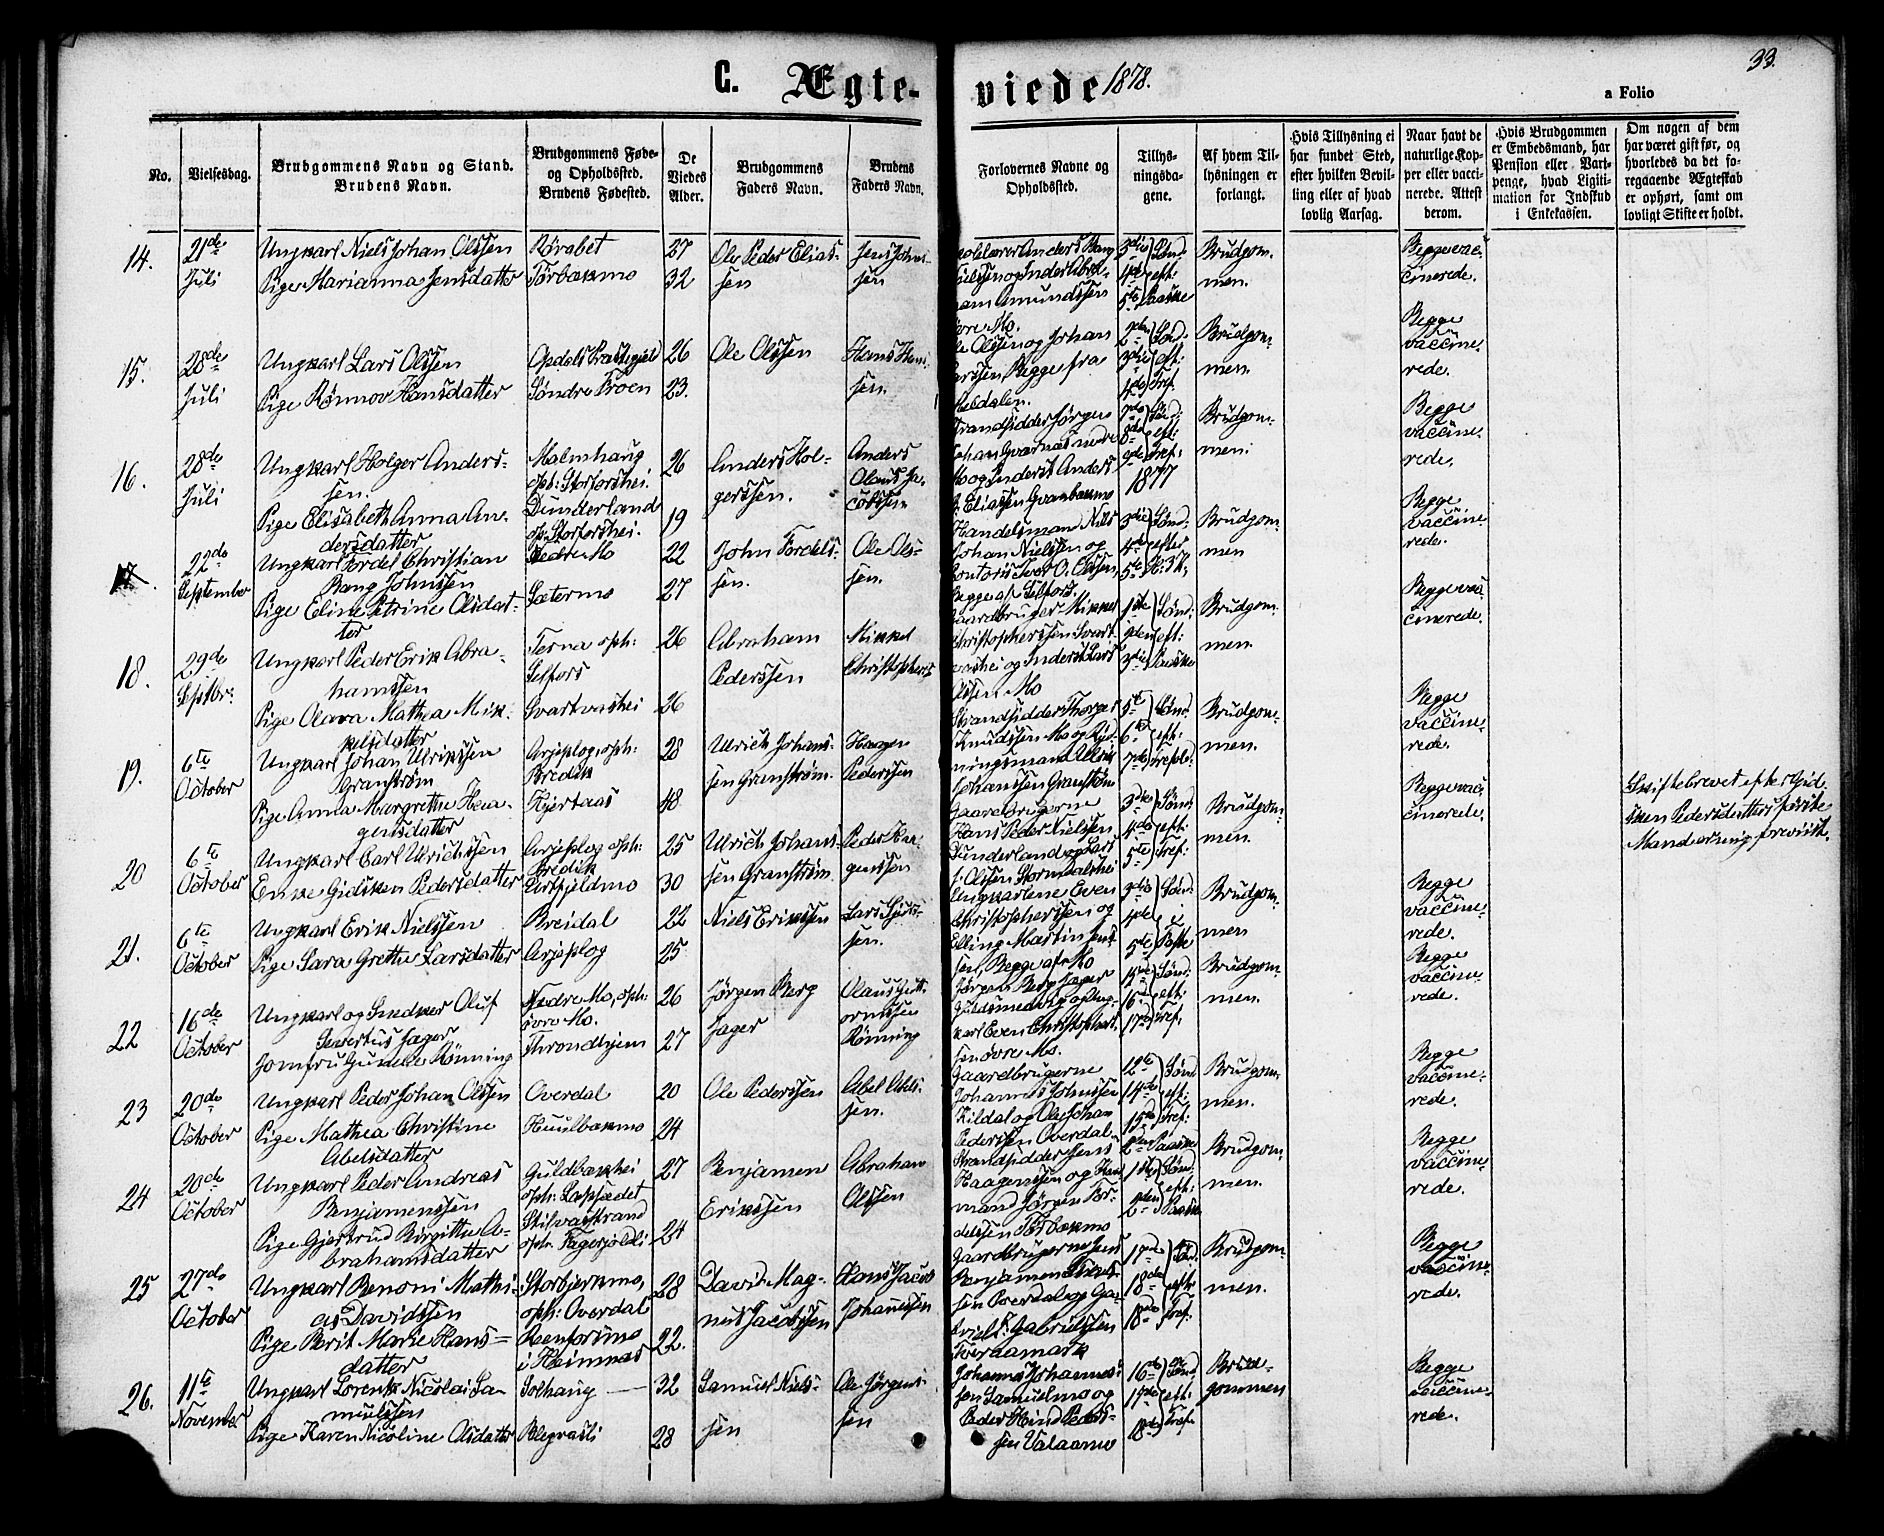 33.
C. Ægte-
viede 1878.
a Folio
No.
Vielsesdag.
Brudgommens Navn og Stand.
Brudens Navn.
Brudgommens Føde-
og Opholdssted.
Brudens Fødested.
De
Viedes
Alder.
Brudgommens
Faders Navn.
Brudens
Faders Navn.
Forlovernes Navne og
Opholdssted.
Tillys-
ningsda-
gene.
Af hvem Til-
lysningen er
forlangt.
Hvis Tillysning ei
har fundet Sted,
efter hvilken Bevil-
ling eller af hvad
lovlig Aarsag.
Naar havt de
naturlige Kop-
per eller vacci-
nerede. Attest
herom.
Hvis Brudgommen
er Embedsmand, har
Pension eller Vart-
penge, hvad Ligiti-
mation for Indskud
i Enkekassen.
Om nogen af dem
har været gift før, og
hvorledes da det fo-
regaaende Ægteskab
er ophørt, samt om
lovligt Skifte er holdt.
14.
21de
Juli
Ungkarl Niels Johan Olssen
Pige Marianna Jensdatter
Rørabet
Tørbækmo
27
32
Ole Peder Elias-
sen
Jens Johns-
sen
Anders Bang
Nielssen og Inderst Abra-
ham Amundssen
øvre Mo.
3die Sønd:
4de eft:
5te Paaske
Brudgom-
men.
Begge vac-
cinerede.
15.
28de
Juli
Ungkarl Lars Olssen
Pige Rønnov Hansdatter
Opdals Præstegjeld
Søndre Troen
26
23.
Ole Olssen
Hans Han-
sen.
Ole Olssen og Johan
Larssen, Begge fra
2den Sønd:
3die eft:
4de Tref.
Brudgom-
men.
Begge
vaccine-
rede.
16.
28de
Juli
Ungkarl Holger Anders-
sen.
Pige Elisabeth Anna An-
dersdatter
Malmhaug
oph: Storforshei.
Dunderland
oph: Storforshei.
26
19
Anders Hol-
gerssen.
Anders
Olaus Ja-
cobssen
Strandsidder Jørgen
Johan Gværnæs nedre
Mo og Inderst Anders
Eliassen Grønbækmo
Sønd:
8de eft:
9de Tref:
1877
Brudgom-
men:
Begge
vaccine-
rede.
17.
22de
September
Ungkarl Fordel Christian
Bang Johnssen
Pige Eline Petrine Olsdat-
ter
Nedre Mo
Sætermo
22
27
John Fordels-
sen.
Ole Ols-
sen.
Handelsmand Nils
Johan Nielssen og
Contorist Iver O. Olssen,
Begge af Selfors.
3die Sønd:
4de efter
5te H: 3 K:
Brudgom-
men
Begge
vaccine-
rede.
18.
29de
Septbr:
Ungkarl Peder Erik Abra-
hamssen
Pige Olava Mathea Mik-
kelsdatter
Terna oph:
Selfors
Svartvashei
26
26
Abraham
Pederssen
Mikkel
Christophers
Gaardbruger Mikkel
Christopherssen Svart-
vashei og Inderst Lars
Olssen Mo
1ste Sønd:
2den eft:
3die Paaske
Brudgom-
men.
Begge vac-
cinerede.
19.
6te
October
Ungkarl Johan Ulrikssen
Granstrøm
Pige Anna Margrethe Haa-
gensdatter
Arjeplog, oph:
Bredik
Hjertaas
28
48
Ulrich Johans-
sen Granstrøm
Haagen
Pederssen
Strandsidder Thorger
Knudssen Mo og Ryd-
ningsmand Ulrich
Johanssen Granstrøm
5te Sønd:
6te eft:
7de Trefol:
Brudgom-
men.
Begge
vaccine-
rede.
20
6te
October
Ungkarl Carl Ulrichssen
Enke Gidsken Pedersdatter
Arjeplog oph:
Bredik
Virkjeldmo
25
30
Ulrich Johans-
sen Granstrøm
Peder Haa-
genssen
Gaardbrugerne
Hans Peder Nielssen
Dunderland og Lars
J. Olssen Stormdalshei
3die Sønd:
4de eft:
5te Tref:
Brudgom-
men.
Begge vac-
cinerede.
Skiftebrevet efter Gid-
sken Pedersdatters første
Mand er mig forevist.
21.
6te
October
Ungkarl Erik Nielssen
Pige Sara Grethe Larsdatter
Breidal
Arjeplog
22
25
Niels Erikssen
Lars
sen.
Ungkarlene Even
Christopherssen og
Elling Martin Jens-
sen, Begge af Mo
3die Sønd:
4de i
5te Faste
Brudgom-
men
Begge
vaccine-
rede.
22
16de
October
Ungkarl og Snedker Oluf
Severtus Jager
Jomfru Gunelie Rønning
Nedre Mo, oph:
øvre Mo.
Throndhjem
26
27
Jørgen Berg
Jager
Olaus Gutt-
ormssen
Rønning
Jørgen Berg Jager
Guldsmed Mo og Ung-
karl Even Christophers-
sen øvre Mo.
15de Sønd:
16de eft:
17de Tref:
Brudgom-
men.
Begge
vaccine-
rede.
23
20de
October
Ungkarl Peder Johan Olssen
Pige Mathea Christine
Abelsdatter
Overdal
Huulbækmo
20
24
Ole Pederssen
Abel Abels-
sen.
Gaardbrugerne
Johannes Johnssen
Kildal og Ole Johan
Pederssen Overdal.
12te Sønd
14de eft:
15de Tref:
Brudgom-
men.
Begge
vaccine-
rede.
24
20de
October
Ungkarl Peder Andreas
Benjamenssen
Pige Gjertrud Birgitte A-
brahamsdatter
Guldbækhei
oph: Læpsædet
Stilvasstrand
oph: Fagerjoldli
27
24
Benjamen
Erikssen
Abraham
Olssen
Strandsidder Jens
Haagenssen og Hus-
mand Jørgen For-
delssen Tørbækmo
2den Paaske
1ste Sønd:
2den eft:
Paaske
Brudgom-
men.
Begge
vaccine-
rede.
25
27de
October
Ungkarl Benoni Mathi-
as Davidssen
Pige Berit Marie Hans=
datter
Storbjerkmo,
oph: Overdal
Reenforsmo
i Hemnæs
28
22.
David Mag-
nus Jacobssen
Hans Jacob
Johanssen
Gaardbrugerne Jens
Benjamen
sen Overdal og Ga-
briel Gabrielssen
Tveraamark
17de Sønd:
18de eft:
18de Tref:
Brudgom-
men.
Begge
vaccine-
rede.
26.
11te
November
Ungkarl Lorents Nicolai Sa-
muelssen
Pige Karen Nicoline Olsdatter
Solhaug
Blegvasli
32
28
Samuel Niels-
sen
Ole Jørgens-
sen
Johannes Johannes-
sen Samuelmo og
Peder Hind Peders-
sen Valaamo
16de Sønd
17de eft:
18de Tref:
Brud-
gommen
Begge
vaccine-
rede.